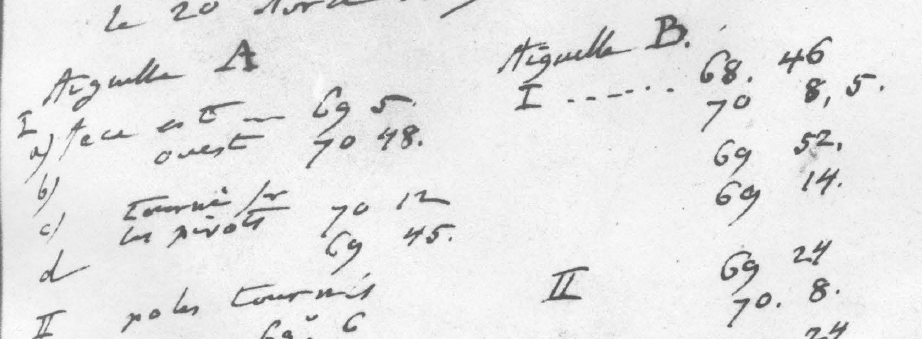 le 20
Aiguille A
I
a) face est 69 5
b) ouest 70 48.
c) tourné sr les pivots 70 12
d 69 45.
II poles tournés
69° 6
Aiguille B.
I ------- 68. 46
70 8,5.
69 52.
69 14.
II 69 24
70. 8.
24